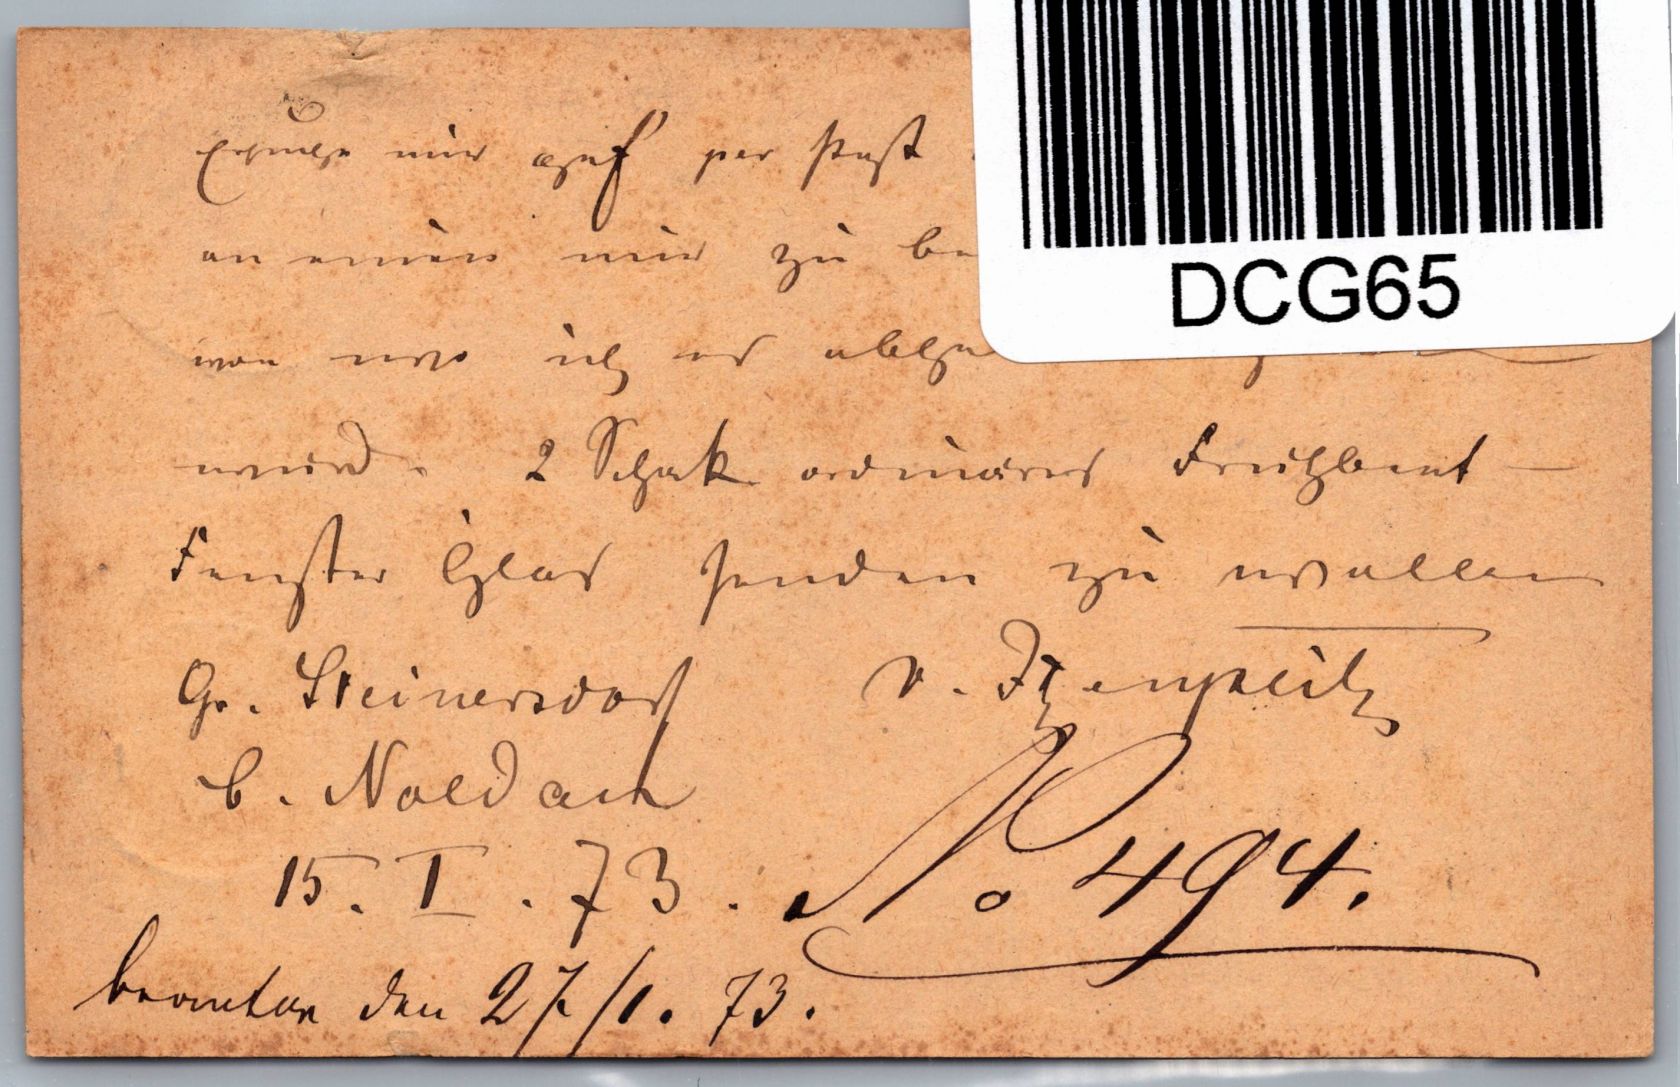 Ersuche mir auf per Post
an einen mir zu be
von wo ich es abho
wird. 2 Schock ordinäres Frühbeet –
Fenster Glas senden zu wollen
Gr. Steinersdorf v. Itzenplitz
b. Noldau
15. I. 73.
No 494.
beantw. den 27/1. 73.
DCG65